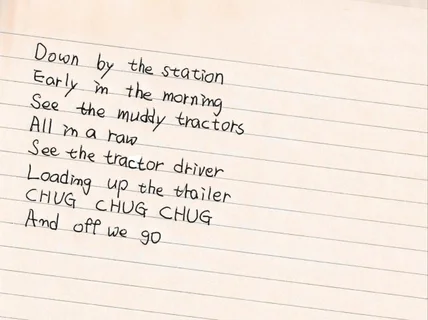 Down by the station
Early in the morning
See the muddy tractors
All in a raw
See the tractor driver
Loading up the trailer
CHUG CHUG CHUG
And off we go